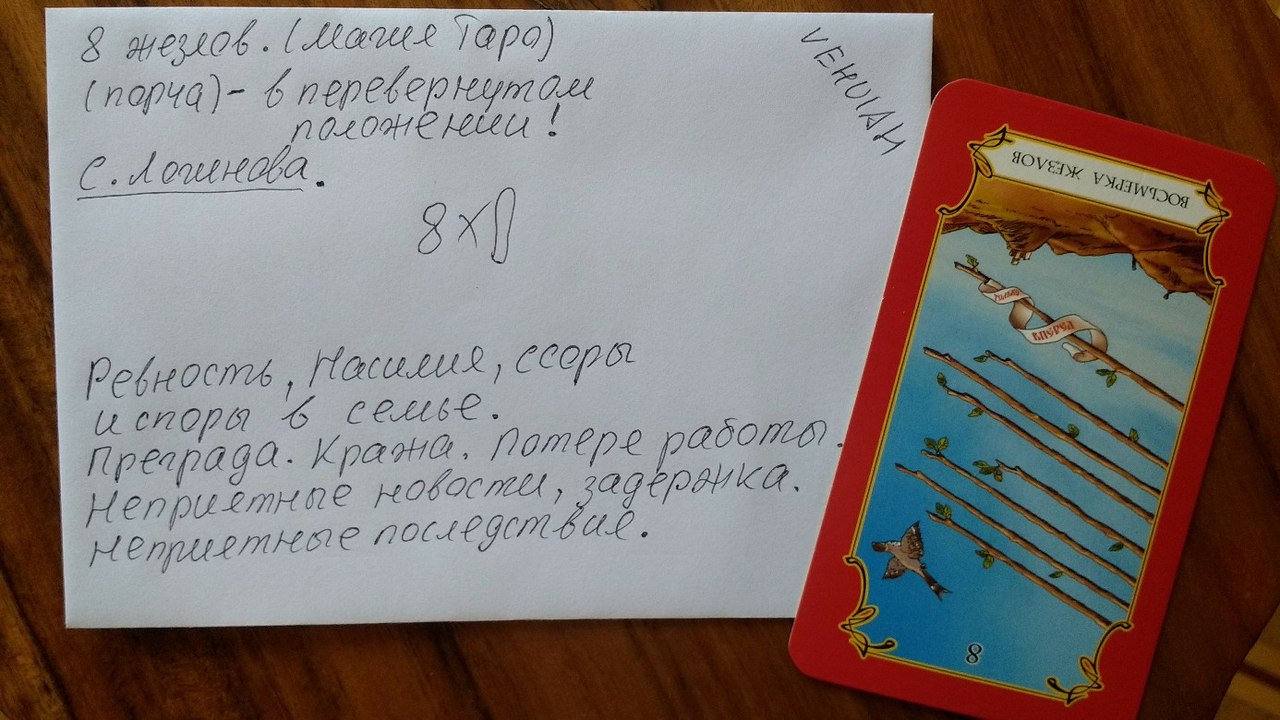 8 жезлов. (Магия Таро)
(порча) - в перевернутом
положении!
С. Логинова.
8 х
Ревность, Насилия, ссоры
и споры в семье.
Преграда. Кража. Потере работы.
Неприятные новости, задержка.
неприятные последствия.
VEHUIAH
ВОСЬМЕРКА ЖЕЗЛОВ
8